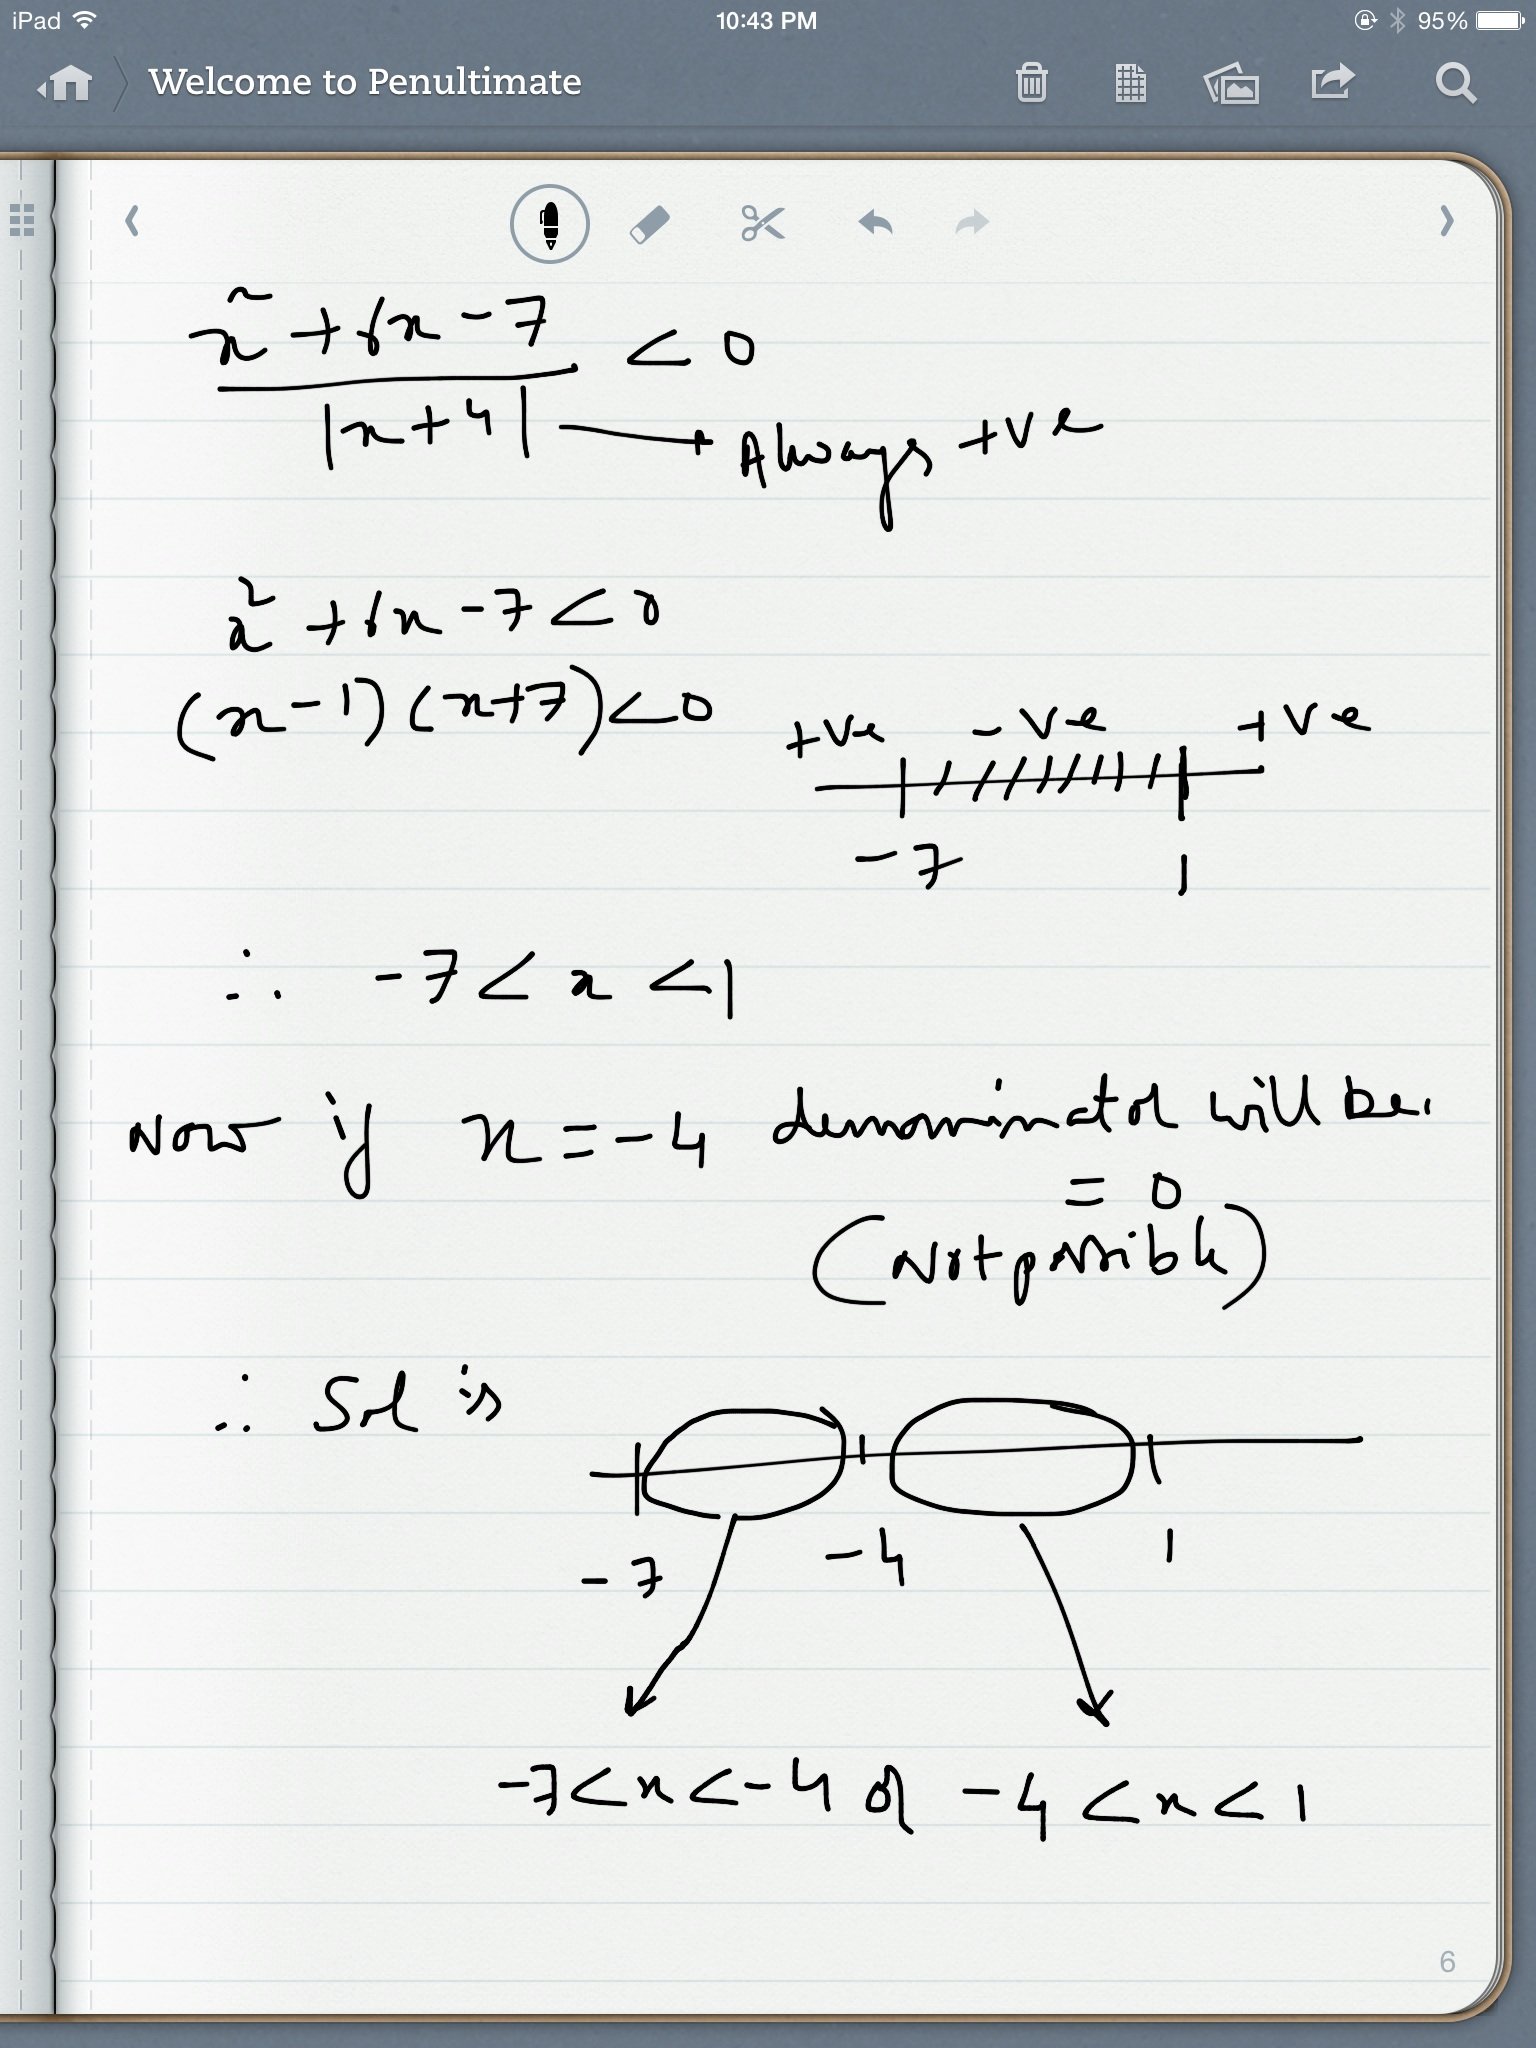 iPad 10:43 PM 95%
Welcome to Penultimate
x² + 6x - 7
/ |x + 4| < 0 → Always +ve
x² + 6x - 7 < 0
(x - 1) (x + 7) < 0
+ve - ve + ve
- 7 1
∴ - 7 < x < 1
Now if x = - 4 denominator will be
= 0
(Not possible)
∴ Sol is
- 7 - 4 1
-7 < x < - 4 or - 4 < x < 1
6